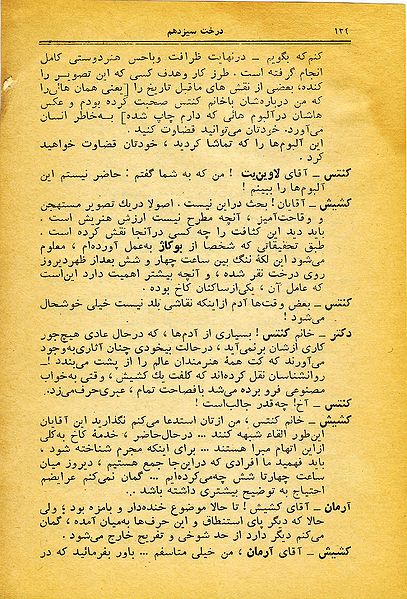 ۱۲۲ درخت سیزدهم
کنم که بگویم ــ درنهایت ظرافت وباحس هنردوستی کامل
انجام گرفته است . طرز کار وهدف کسی که این تصویر را
کنده، بعضی از نقش های ماقبل تاریخ را [یعنی همان هائی را
که من درباره‌شان باخانم کنتس صحبت کرده بودم و عکس
هاشان درآلبوم هائی که دارم چاپ شده] بــه‌خاطر انسان
می‌آورد. خودتان می‌توانید قضاوت کنید .
این آلبوم‌ها را که تماشا کردید ، خودتان قضاوت خواهید
کرد .
کنتس ــ آقای لاوین‌یت ! من که به شما گفتم : حاضر نیستم این
آلبوم‌ها را ببینم !
کشیش ــ آقایان! بحث دراین نیست . اصولا دریك تصویر مستهجن
و وقاحت‌آمیز ، آنچه مطرح نیست ارزش هنریش است .
باید دید این کثافت را چه کسی درآنجا نقش کرده است .
طبق تحقیقاتی که شخصاً از بوکاژ به‌عمل آورده‌ام ، معلوم
می‌شود این لکهٔ ننگ بین ساعت چهار و شش بعداز ظهردیروز
روی درخت نقر شده ، و آنچه بیشتر اهمیت دارد این‌است
که عامل آن ، یکی‌ازساکنان کاخ بوده .
کنتس ــ بعض وقت‌ها آدم ازاینکه نقاشی بلد نیست خیلی خوشحال
می‌شود !
دکتر ــ خانم کنتس ! بسیاری از آدم‌ها ، که درحال عادی هیچ‌جور
کاری ازشان برنمی‌آید ، درحالت بیخودی چنان آثاری‌به‌وجود
می‌آورند که کت همهٔ هنرمندان عالم را از پشت می‌بندد !
روانشناسان نقل کرده‌اند که کلفت یك کشیش ، وقتی به‌خواب
مصنوعی فرو برده می‌شد بافصاحت تمام ، عبری‌حرف‌می‌زد.
کنتس ــ آخ! چه‌قدر جالب‌است !
کشیش ــ خانم کنتس ، من ازتان استدعا می‌کنم نگذارید این آقایان
این‌طور القاء شبهه کنند ... درحال‌حاضر ، خدمهٔ کاخ به‌کلی
ازاین اتهام مبرا هستند ... برای اینکه مجرم شناخته شود ،
باید فهمید ما افرادی که دراین‌جا جمع هستیم ، دیروز میان
ساعت چهارتا شش چه‌می‌کرده‌ایم ... گمان نمی‌کنم عرایضم
احتیاج به توضیح بیشتری داشته باشد ..
آرمان ــ آقای کشیش ! تا حالا موضوع خنده‌دار و بامزه بود ؛ ولی
حالا که دیگر پای استنطاق و این حرف‌ها به‌میان آمده ، گمان
می‌کنم دیگر دارد از حد شوخی و تفریح خارج می‌شود .
کشیش ــ آقای آرمان ، من خیلی متاسفم ... باور بفرمائید که در